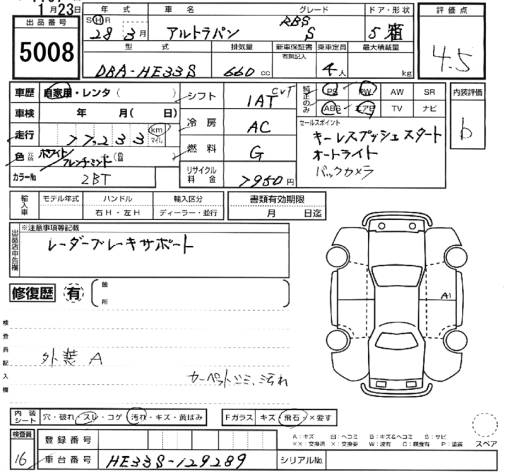 月23日
出品番号
5008
年式 車名 グレード ドア・形状
SHR 28年3月 アルトラパン RBS S 5 箱
型式 排気量 新車保証書 乗車定員 最大積載量
有無記入
DBA-HE33S 660cc 4人 kg
評価点
4.5
車歴 自家用・レンタ( )
車検 年 月( 日)
走行 77,233 km マイル
色 ホワイト/フレンチミント
カラーNo 2BT
シフト 1AT CVT
冷房 AC
燃料 G
リサイクル料金 7980円
純正のみ PS PW AW SR
ABS エアB TV ナビ
セールスポイント
キーレスプッシュスタート
オートライト
バックカメラ
内装評価
b
輸入車 モデル年式 ハンドル 輸入区分
右H・左H ディーラー・並行
書類有効期限
月 日迄
出品店申告欄
※注意事項等記載
レーダーブレーキサポート
修復歴 有 箇所
検査員記入欄
外装A
カーペットシミ、汚れ
A1
内装シート 穴・破れ・スレ・コゲ 汚れ・キズ・黄ばみ
Fガラス キズ・飛石・×要す
A:キズ U:ヘコミ B:キズ&ヘコミ S:サビ
××:交換済 ×:交換要 W:波有 C:腐食有 P:塗装
スペア
検査員 16
登録番号
車台番号 HE33S-129289
シリアルNo.